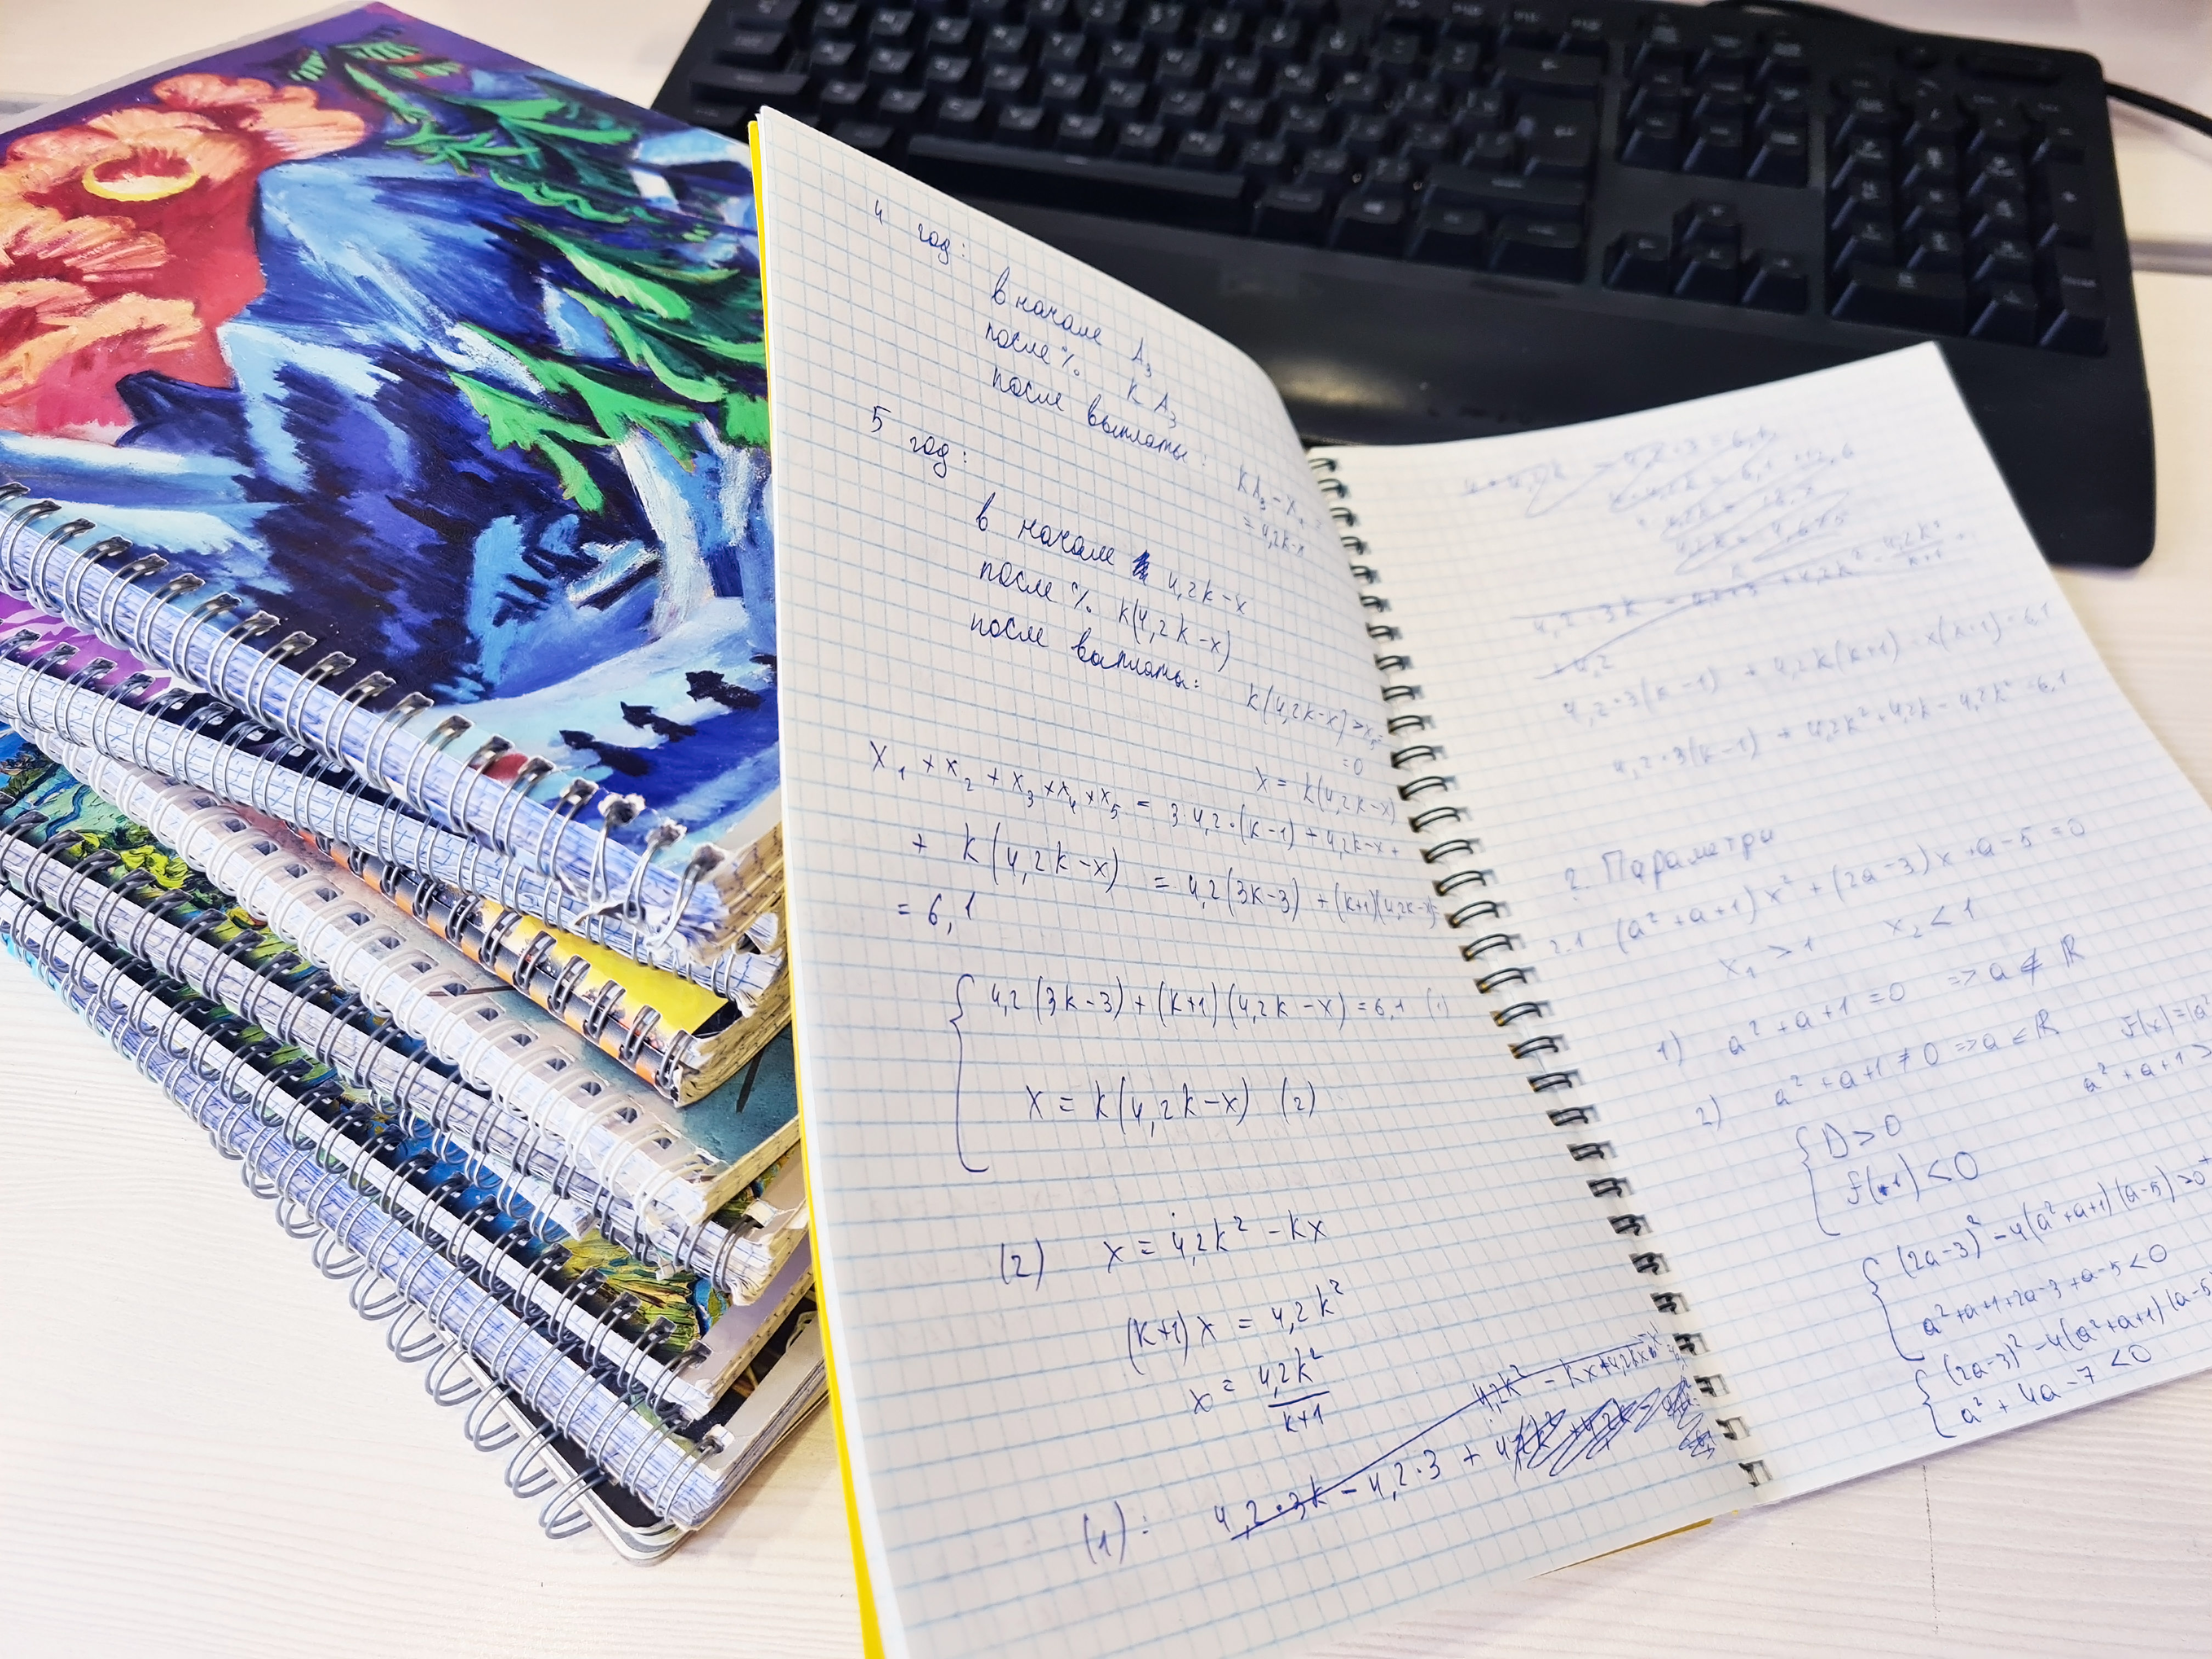 4 год:
в начале A₃
после % k A₃
после выплаты: kA₃ - x₄ =
= 4,2k-x
5 год:
в начале 4,2k-x
после % k(4,2k-x)
после выплаты: k(4,2k-x)-x₅=
=0
x = k(4,2k-x)
x₁ + x₂ + x₃ + x₄ + x₅ = 3·4,2·(k-1) + 4,2k-x +
+ k(4,2k-x) = 4,2(3k-3) + (k+1)(4,2k-x)=
= 6,1
4,2(3k-3) + (k+1)(4,2k-x) = 6,1 (1)
x = k(4,2k-x) (2)
(2) x = 4,2k² - kx
(k+1)x = 4,2k²
x = 4,2k²/k+1
4,2k² - kx
(1): 4,2·3k - 4,2·3 +
4,2·3(k-1) + 4,2k(k+1) - x(k+1) = 6,1
4,2·3(k-1) + 4,2k² + 4,2k - 4,2k² = 6,1
2. Параметри
2.1 (a²+a+1)x² + (2a-3)x + a-5 = 0
x₁ > 1 x₂ < 1
1) a²+a+1 = 0 => a ∉ ℝ
2) a²+a+1 ≠ 0 => a ∈ ℝ f(x)=(a²
a²+a+1 >
D > 0
f(1) < 0
(2a-3)² - 4(a²+a+1)(a-5) > 0
a²+a+1+2a-3+a-5 < 0
(2a-3)² - 4(a²+a+1)(a-5
a² + 4a - 7 < 0